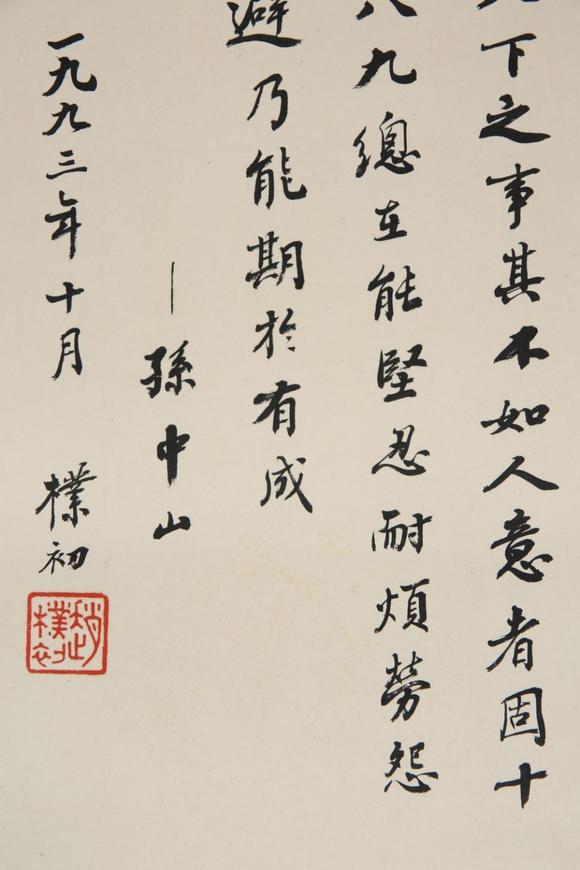 下之事其不如人意者固十
八九總在能堅忍耐煩勞怨
避乃能期於有成
—孫中山
一九九三年十月 樸初
趙樸初